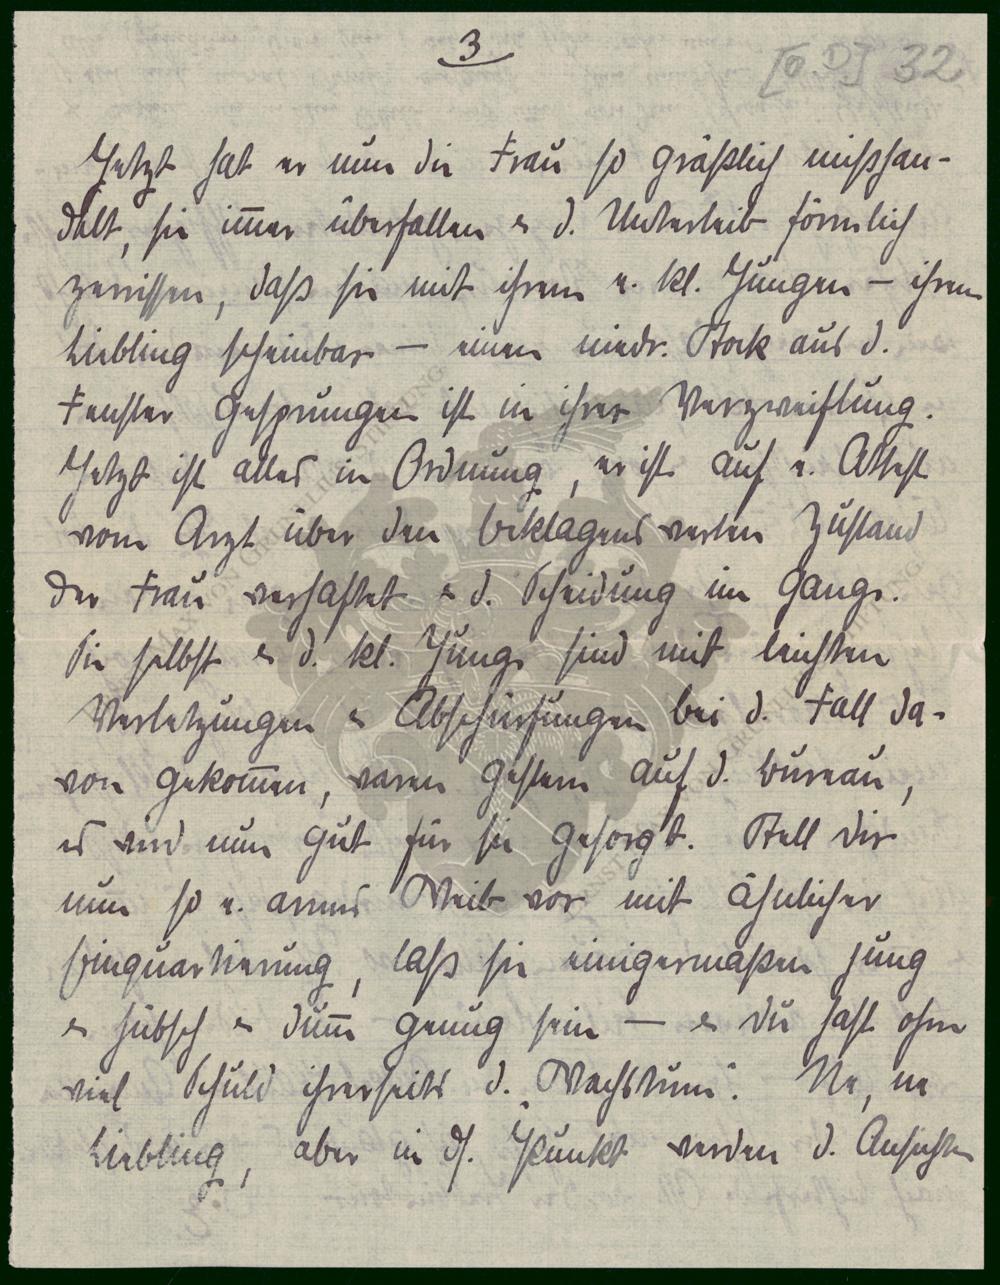 3
[o D] 32
Jetzt hat er nun die Frau so gräßlich mißhan-
delt, sie im̅er überfallen & d. Unterleib förmlich
zerrissen, daß sie mit ihrem e. kl. Jungen – ihrem
Liebling scheinbar – einen niedr. Stock aus d.
Fenster gesprungen ist in ihrer Verzweiflung.
Jetzt ist alles in Ordnung, er ist auf e. Attest
vom Arzt über den beklagenswerten Zustand
der Frau verhaftet & d. Scheidung im Gange.
Sie selbst & d. kl. Junge sind mit leichten
Verletzungen & Abschürfungen bei d. Fall da-
von gekom̅en, waren gestern auf d. bureau,
es wird nun gut für sie gesorgt. Stell dir
nun so e. armes Weib vor mit ähnlicher
Einquartierung, laß sie einigermaßen jung
& hübsch & dum̅ genug sein – & du hast ohne
viel Schuld ihrerseits d. „Wachstum“. Ne, ne
Liebling, aber in ds. Punkt werden d. Ansichten